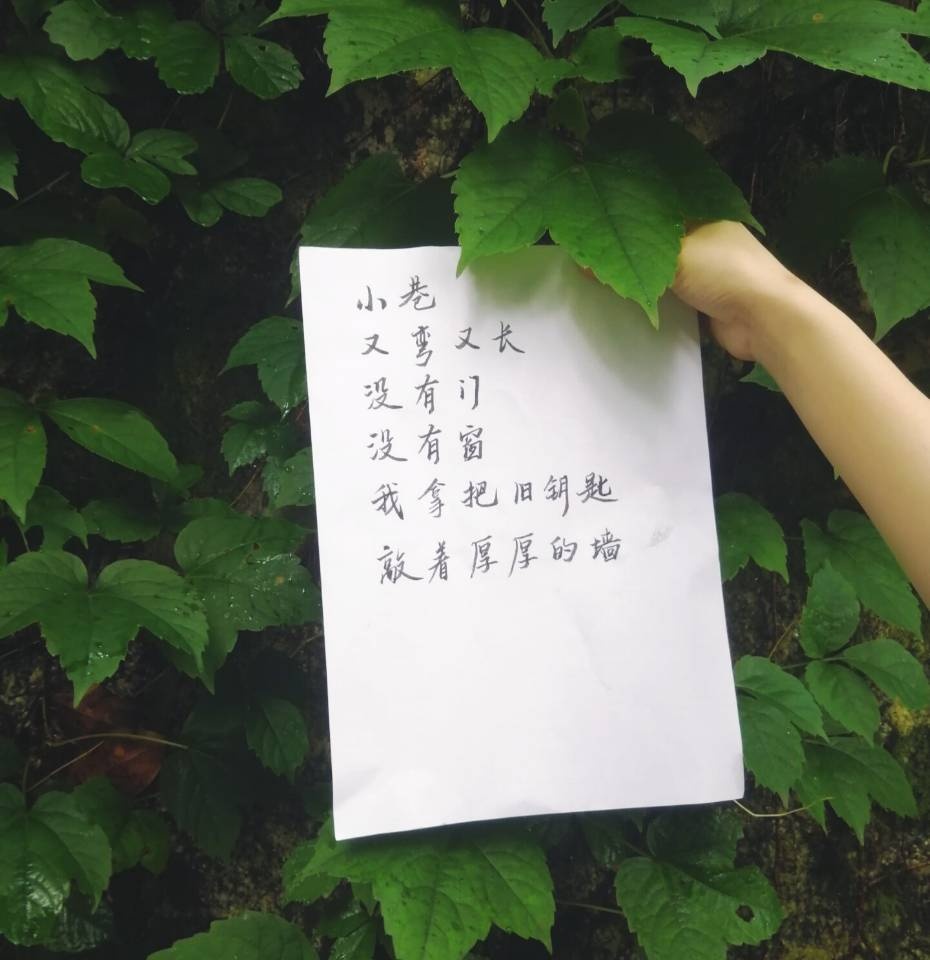 小巷
又弯又长
没有门
没有窗
我拿把旧钥匙
敲着厚厚的墙